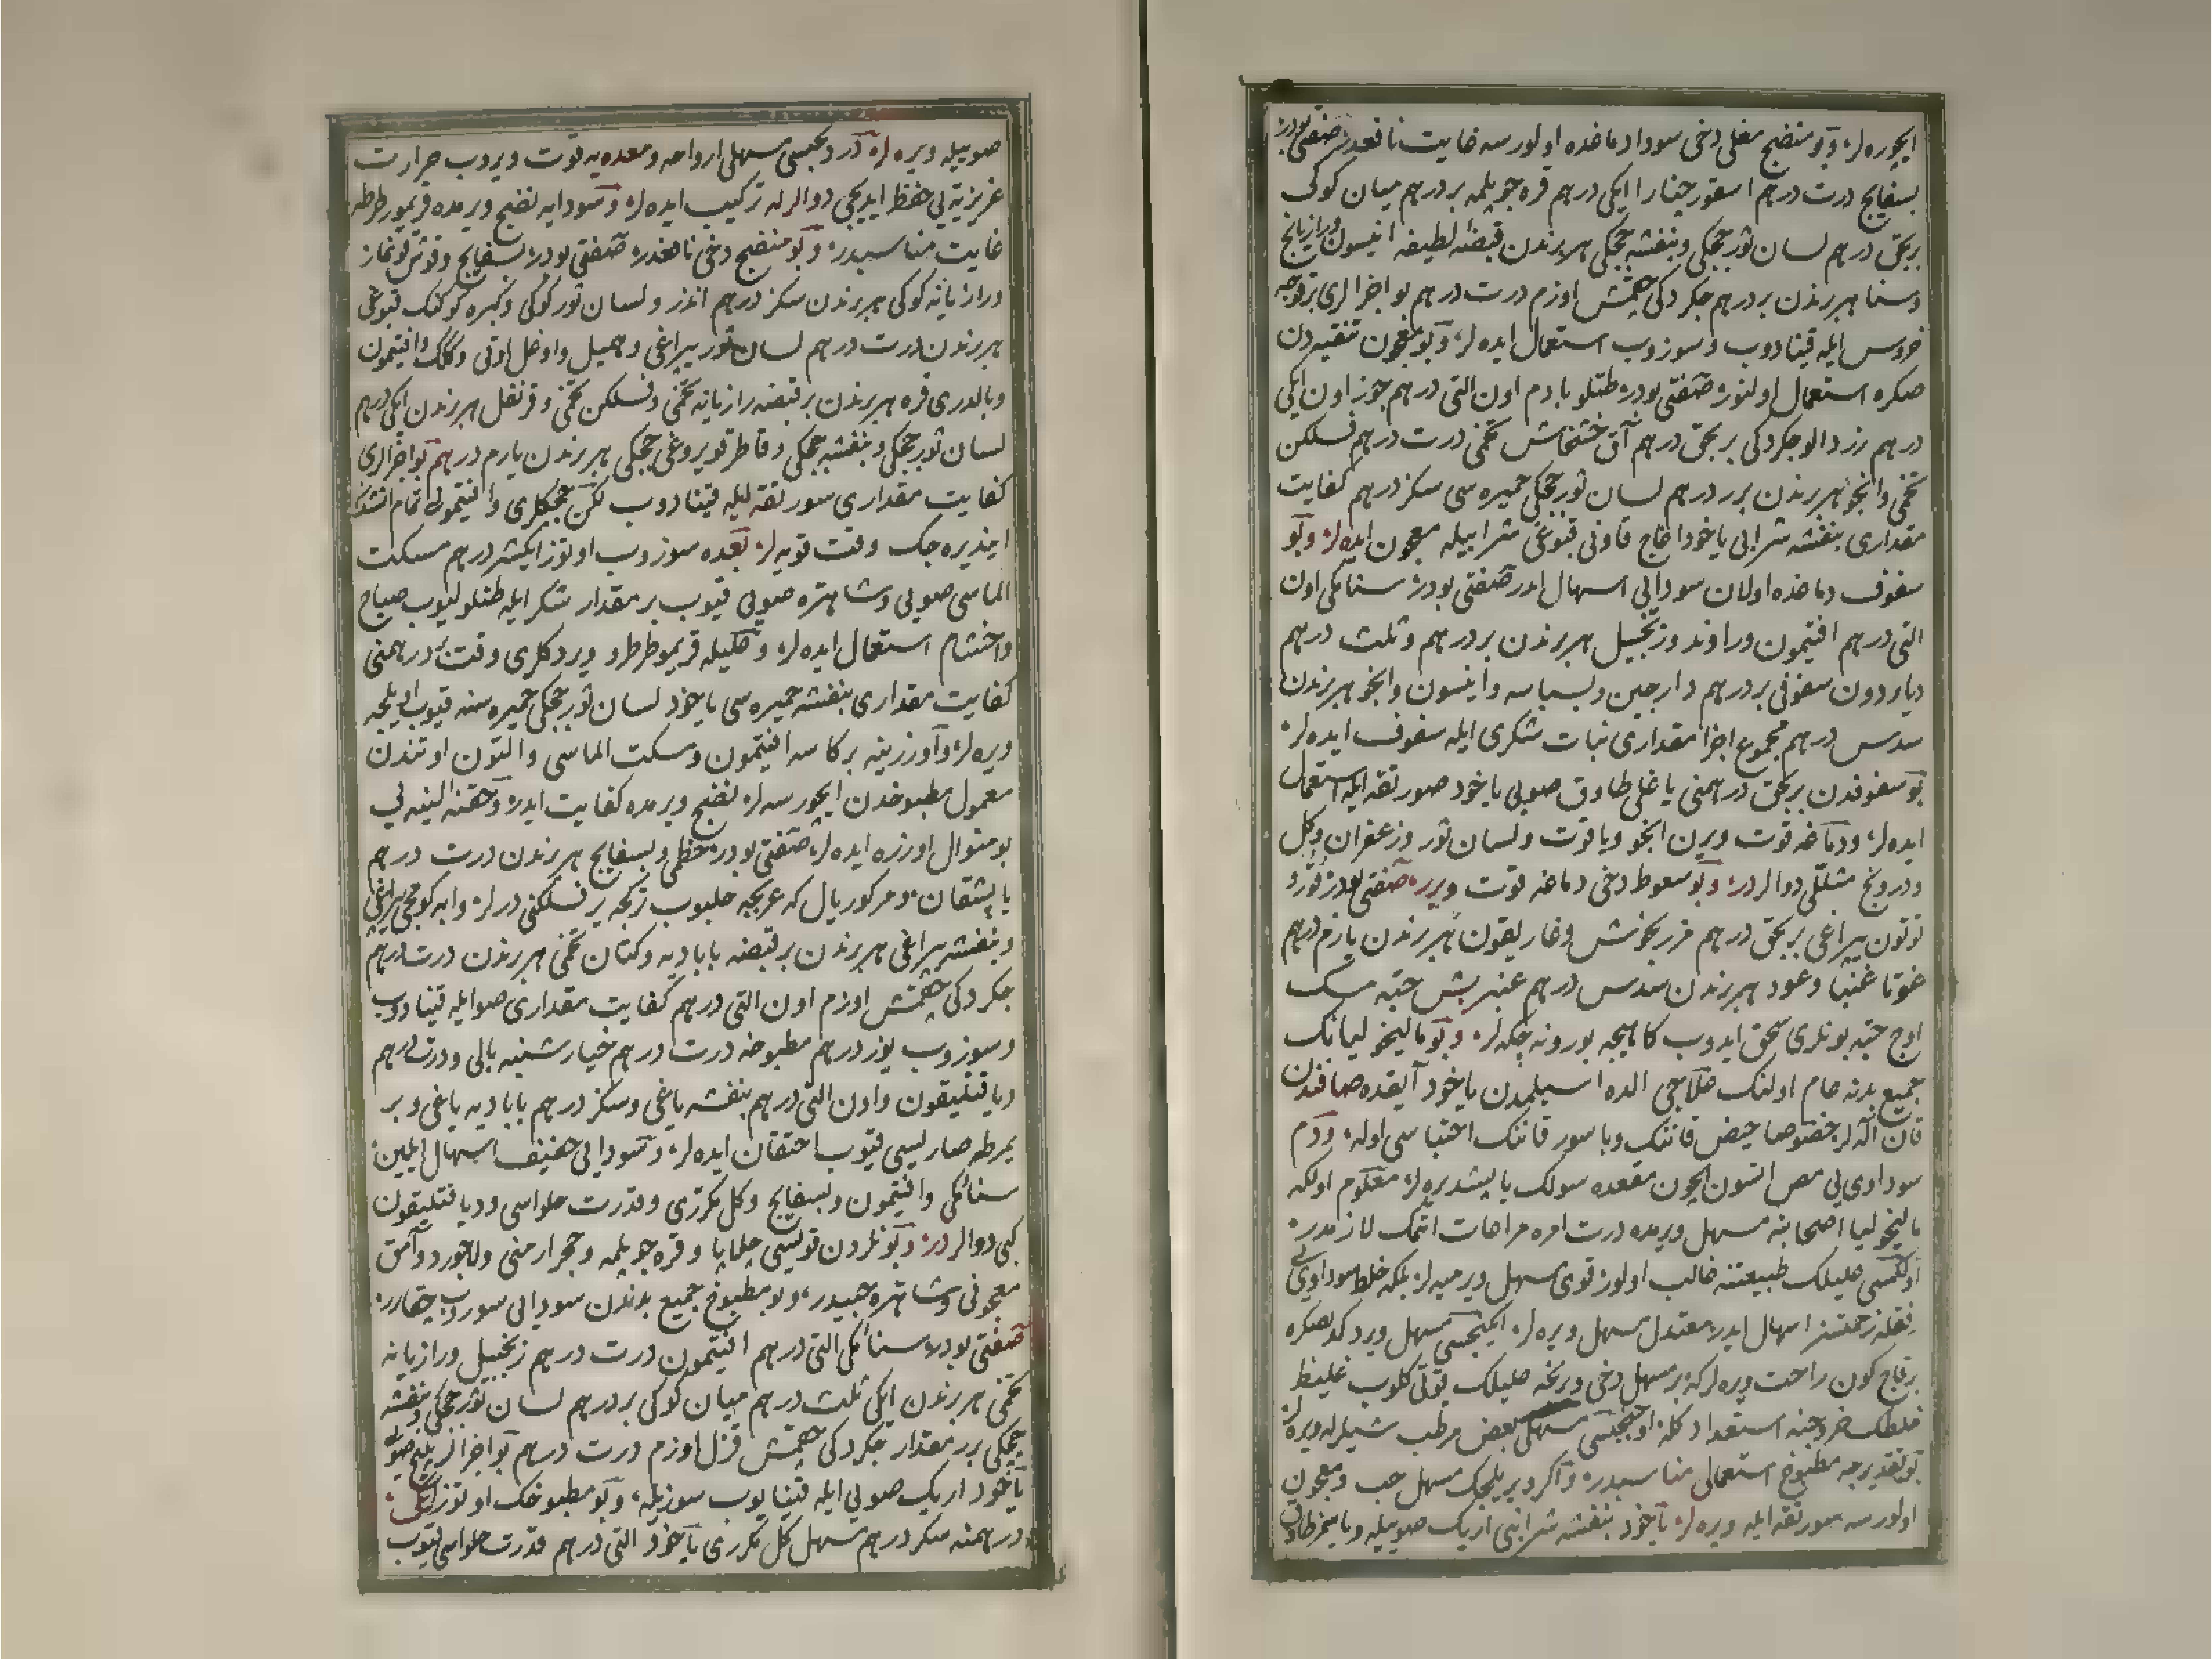 ایچوره لر وبو منضج مغلی دخی سودا دماغده اولورسه غایت نافعدر صنعتی بودر
بسفایج درت درهم اسقورچنارا ایکی درهم قره جوپلمه بر درهم میان کوکی
بربحق درهم لسان ثور چچکی وبنفشه چچکی هر برندن قبضهٔ لطیفه انیسون ورازیانج
وسنا هر برندن بر درهم چکردکی چقمش اوزم درت درهم بو اجزالری بر قوجه
خروس ایله قینادوب وسوزوب استعمال ایده لر وبو معجون تنقیه دن
صکره استعمال اولنور صنعتی بودر طتلو بادم اون التی درهم جوز اون ایکی
درهم زردالو چکردکی بربحق درهم آق خشخاش تخمی درت درهم فسلکن
تخمی وانجو هر برندن برر درهم لسان ثور چچکی خمیره سی سکز درهم کفایت
مقداری بنفشه شرابی یاخود اغاج قاونی قبوغی شرابیله معجون ایده لر وبو
سفوف دماغده اولان سودایی اسهال ایدر صنعتی بودر سنامکی اون
التی درهم افتیمون وراوند وزنجبیل هر برندن بر درهم وثلث درهم
دیاردون سفوفی بر درهم دارچین وبسباسه وانیسون وانجو هر برندن
سدس درهم مجموع اجزا مقداری نبات شکری ایله سفوف ایده لر
بو سفوفدن بربحق درهمنی یاغلی طاوق صویی یاخود صور تقه ایله استعمال
ایده لر ودماغه قوت ویرن انجو ویاقوت ولسان ثور وزعفران وکل
ودرونج مثللی دوالردر وبو سعوط دخی دماغه قوت ویرر صنعتی بودر
توتون یپراغی بربحق درهم مرزنجوش وغاریقون هر برندن یارم درهم
وعود هر برندن سدس درهم عنبر بش حبه مسک
اوج حبه بونلری سحق ایدوب کاهیجه بورونه چکه لر وبو مالیخولیانک
جمیع بدنه عام اولنک علاجی الده اسیلمدن یاخود آیقده صافندن
قان اله لر خصوصا حیض قاننک وباسور قاننک احتباسی اوله ودم
سوداوی یی مص اتسون ایچون مقعده سولک یاپشدیره لر معلوم اولکه
مالیخولیا اصحابنه مسهل ویرمده درت امره مراعات اتمک لازمدر
اولکسی علیلک طبیعتنه غالب اولور قوی مسهل ویرمیه لر بلکه خلط سوداوی یی
زحمتسز اسهال ایدر معتدل مسهل ویره لر ایکنجیسی مسهل ویردکدنصکره
برقاج کون راحت ویره لر که بر مسهل دخی ویرنجه علیلک قوتی کلوب غلیظ
خلطک خروجنه استعداد کله اوچنجیسی مسهلی بعض مرطب شیلرله ویره لر
بو تقدیرجه مطبوخ استعمالی مناسبدر واکر ویریلجک مسهل حب ومعجون
اولورسه صور تقه ایله ویره لر یاخود بنفشه شرابنی اریک صوییله
صوییله ویره لر دردنجیسی مسهلی ارواحه ومعده یه قوت ویروب حرارت
غریزیه یی حفظ ایدیجی دوالرله ترکیب ایده لر وسودایه نضج ویرمده قریمورطرطر
غایت مناسبدر وبو منضج دخی نافعدر صنعتی بودر بسفایج
ورازیانه کوکی هر برندن سکز درهم اندز ولسان ثور کوکی وکبره کوکنک قبوغی
هر برندن درت درهم لسان ثور یپراغی وافتیمون
وبالدری قره هر برندن بر قبضه رازیانه تخمی وفسلکن تخمی وقرنفل هر برندن ایکی درهم
لسان ثور چچکی وبنفشه چچکی وقاطر قویروغی چچکی هر برندن یارم درهم بو اجزالری
کفایت مقداری سور تقه لیله قینادوب لکن چچکلری وافتیمونی تمام
ایندیره جک وقت قویه لر بعده سوزوب اوتوز ایکیشر درهم مسکت
الماسی صویی وشاهتره صویی قیوب بر مقدار شکر ایله طتلولیوب صباح
واخشام استعمال ایده لر وعلیله قریموطرطر ویردکلری وقت درهمنی
کفایت مقداری بنفشه خمیره سی یاخود لسان ثور چچکی خمیره سنه قیوب اویلجه
ویره لر واوزرینه بر کاسه افتیمون ومسکت الماسی والتون اوتندن
معمول مطبوخدن ایچورسه لر نضج ویرمده کفایت ایدر وحقنهٔ لینه یی
بو منوال اوزره ایده لر صنعتی بودر خطمی وبسفایج هر برندن درت درهم
یاپشقان ومرکوریال که عربجه حلبوب ترکجه یر فسلکنی درلر
وبنفشه یپراغی هر برندن بر قبضه بابادیه وکتان تخمی هر برندن درت درهم
چکردکی چقمش اوزم اون التی درهم کفایت مقداری صو ایله قینادوب
وسوزوب یوز درهم مطبوخه درت درهم خیارشنبه بالی ودرت درهم
دیاقتلیقون واون التی درهم بنفشه یاغی وسکز درهم بابادیه یاغی وبر
یمرطه صاریسی قیوب احتقان ایده لر وسودایی خفیف اسهال ایلین
سنامکی وافتیمون وبسفایج وکل مکرری وقدرت حلواسی ودیاقتلیقون
کبی دوالردر وبونلردن قویسی جلاپا وقره جوپلمه وحجر ارمنی ولاجورد وآمق
معجونی وشاهتره حبیدر وبو مطبوخ جمیع بدندن سودایی سوروب چقارر
صنعتی بودر سنامکی التی درهم افتیمون درت درهم زنجبیل ورازیانه
تخمی هر برندن ایکی ثلث درهم میان کوکی بر درهم لسان ثور چچکی وبنفشه
چچکی برر مقدار چکردکی چقمش قزل اوزم درت درهم بو اجزالر
یاخود اریک صویی ایله قینایوب سوزیله وبو مطبوخک اوتوز
درهمنه سکز درهم مسهل کل مکرری یاخود التی درهم قدرت حلواسی قیوب